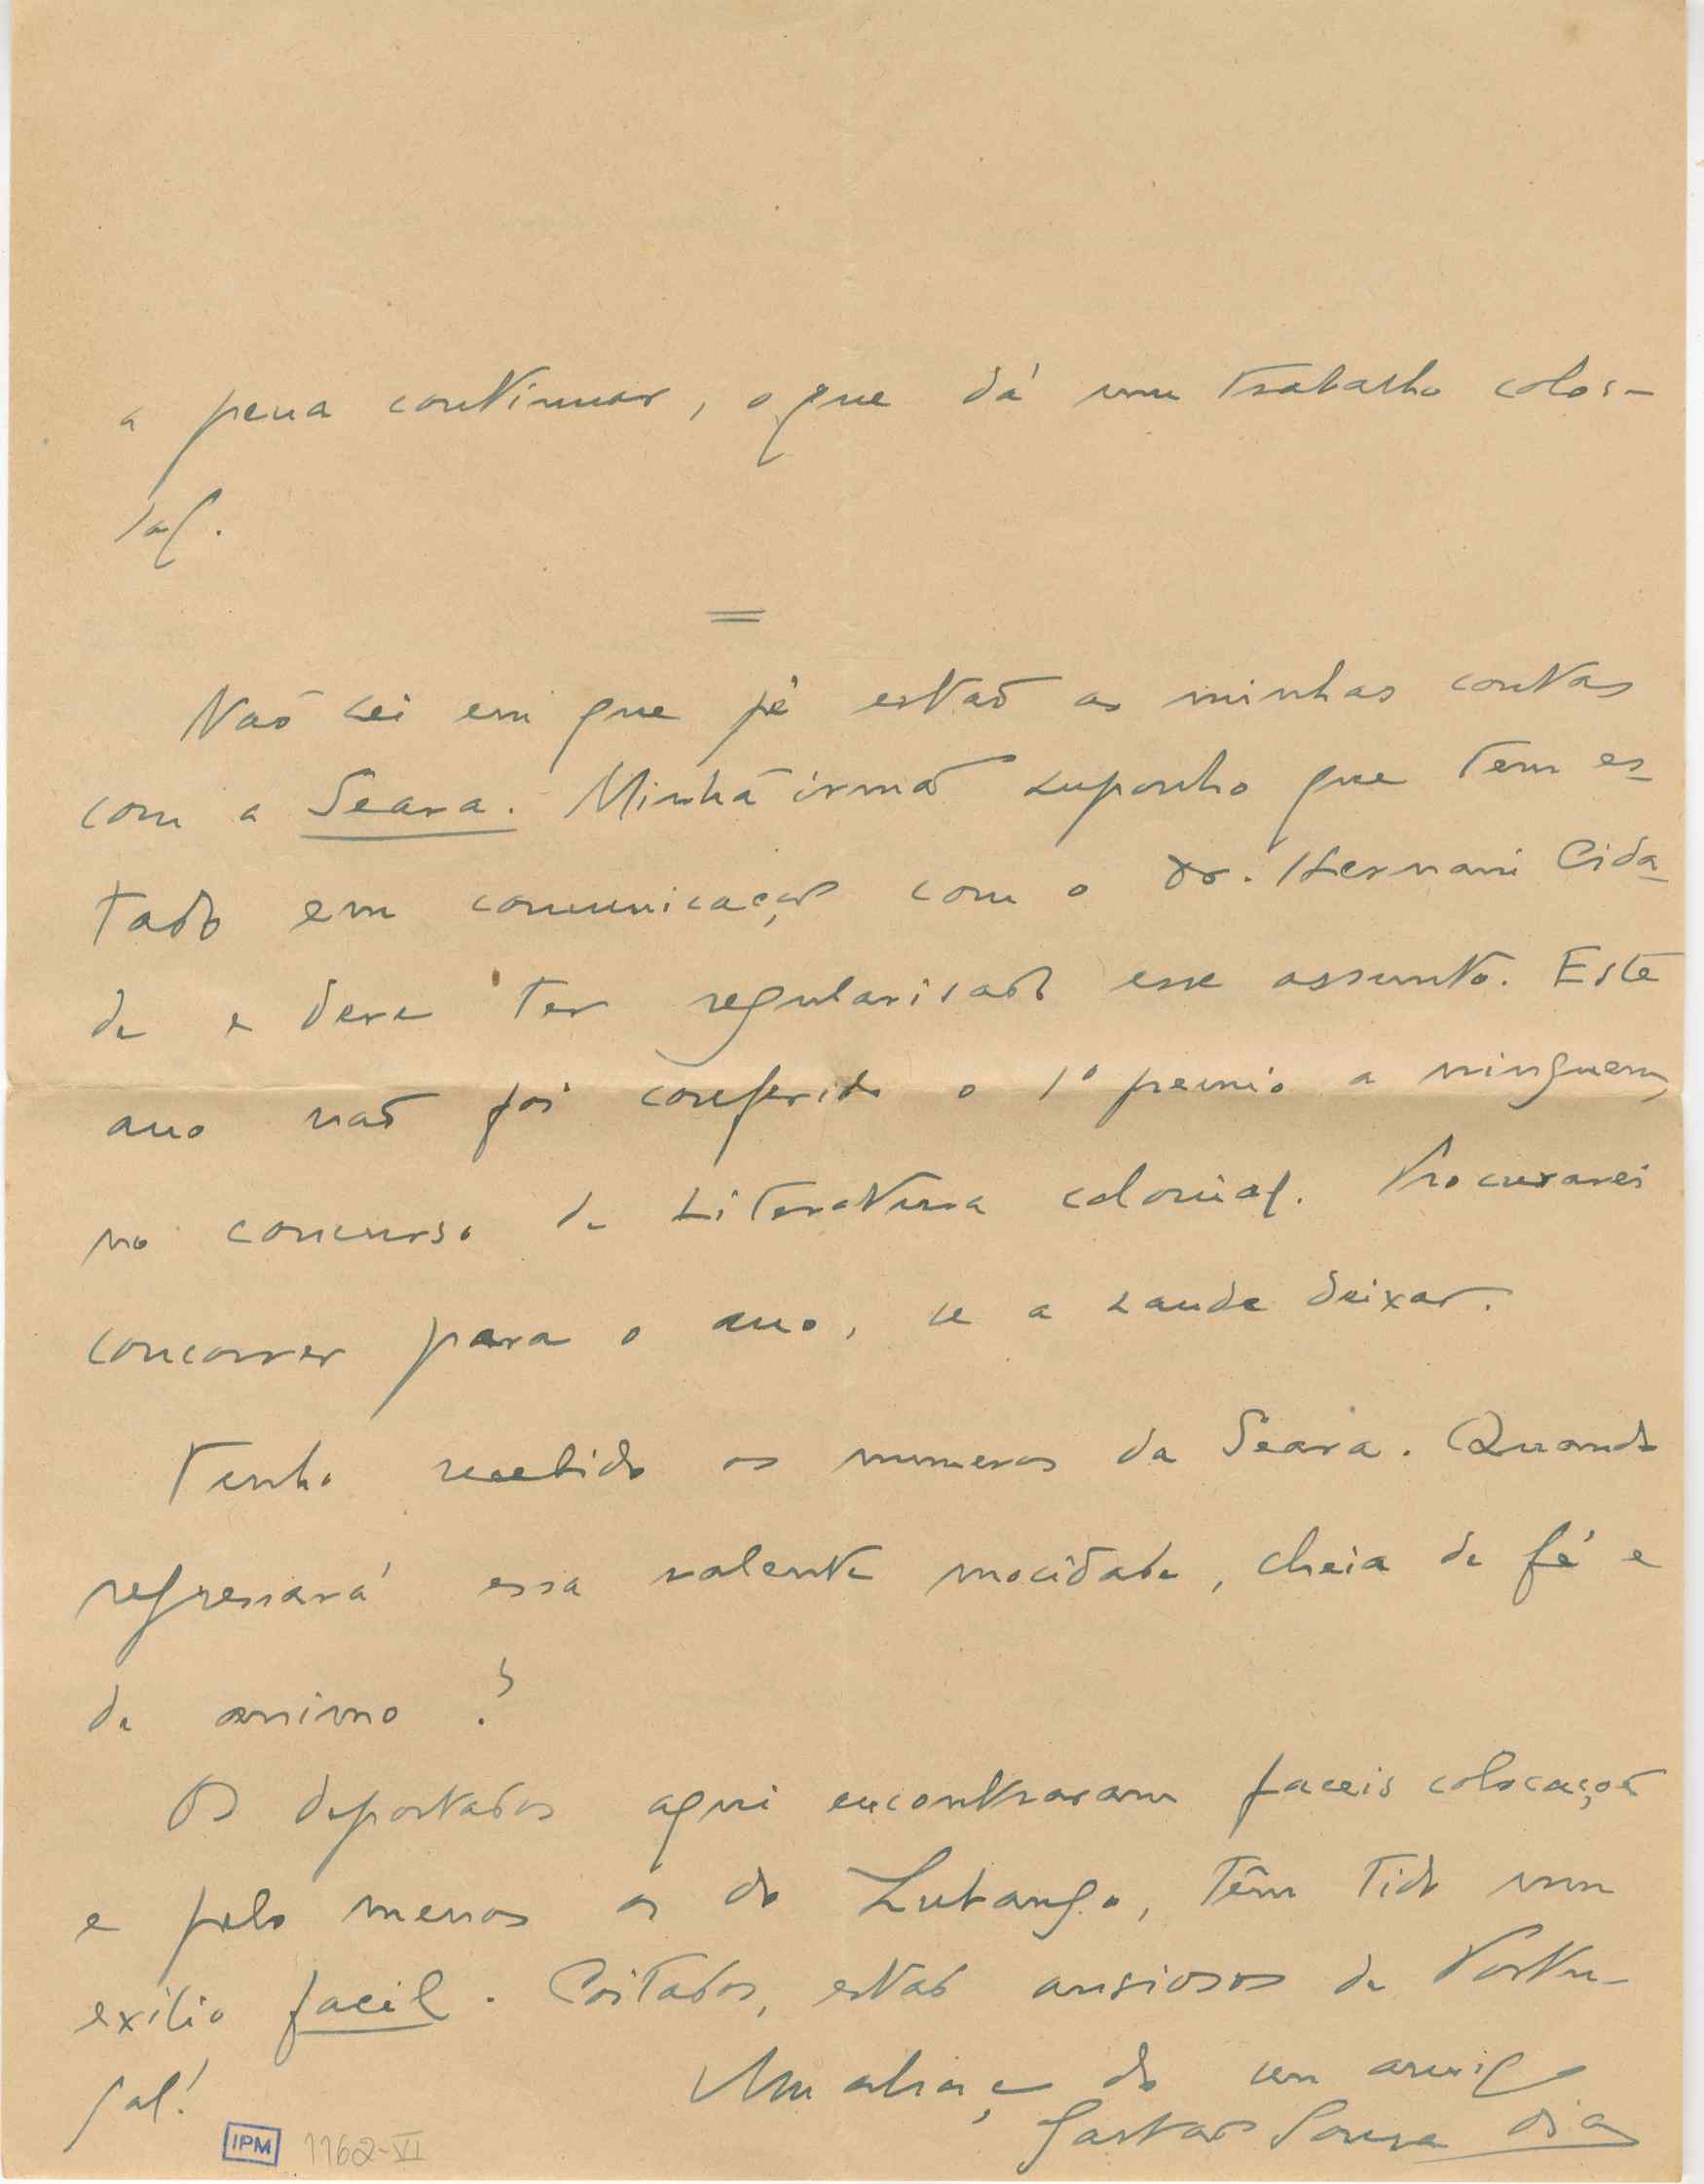 a pena continuar, o que dá um trabalho colos-
sal.
=
Não sei em que pé estão as minhas contas
com a Seara. Minha irmã suponho que tem es-
tado em comunicação com o Dr. Hernani Cida-
de e deve ter regularisado esse assunto. Este
ano não foi conferido o 1º premio a ninguem,
no concurso de Literatura colonial. Procurarei
concorrer para o ano, se a saude deixar.
Tenho recebido os numeros da Seara. Quando
regressará essa valente mocidade, cheia de fé e
de animo?
Os deportados aqui encontraram faceis colocações
e pelo menos os do Lubango, têm tido um
exilio facil. Coitados, estão ansiosos de Portu-
gal!
Um abraço do seu amigo
Gastão Sousa Dias
IPM 1162-VI